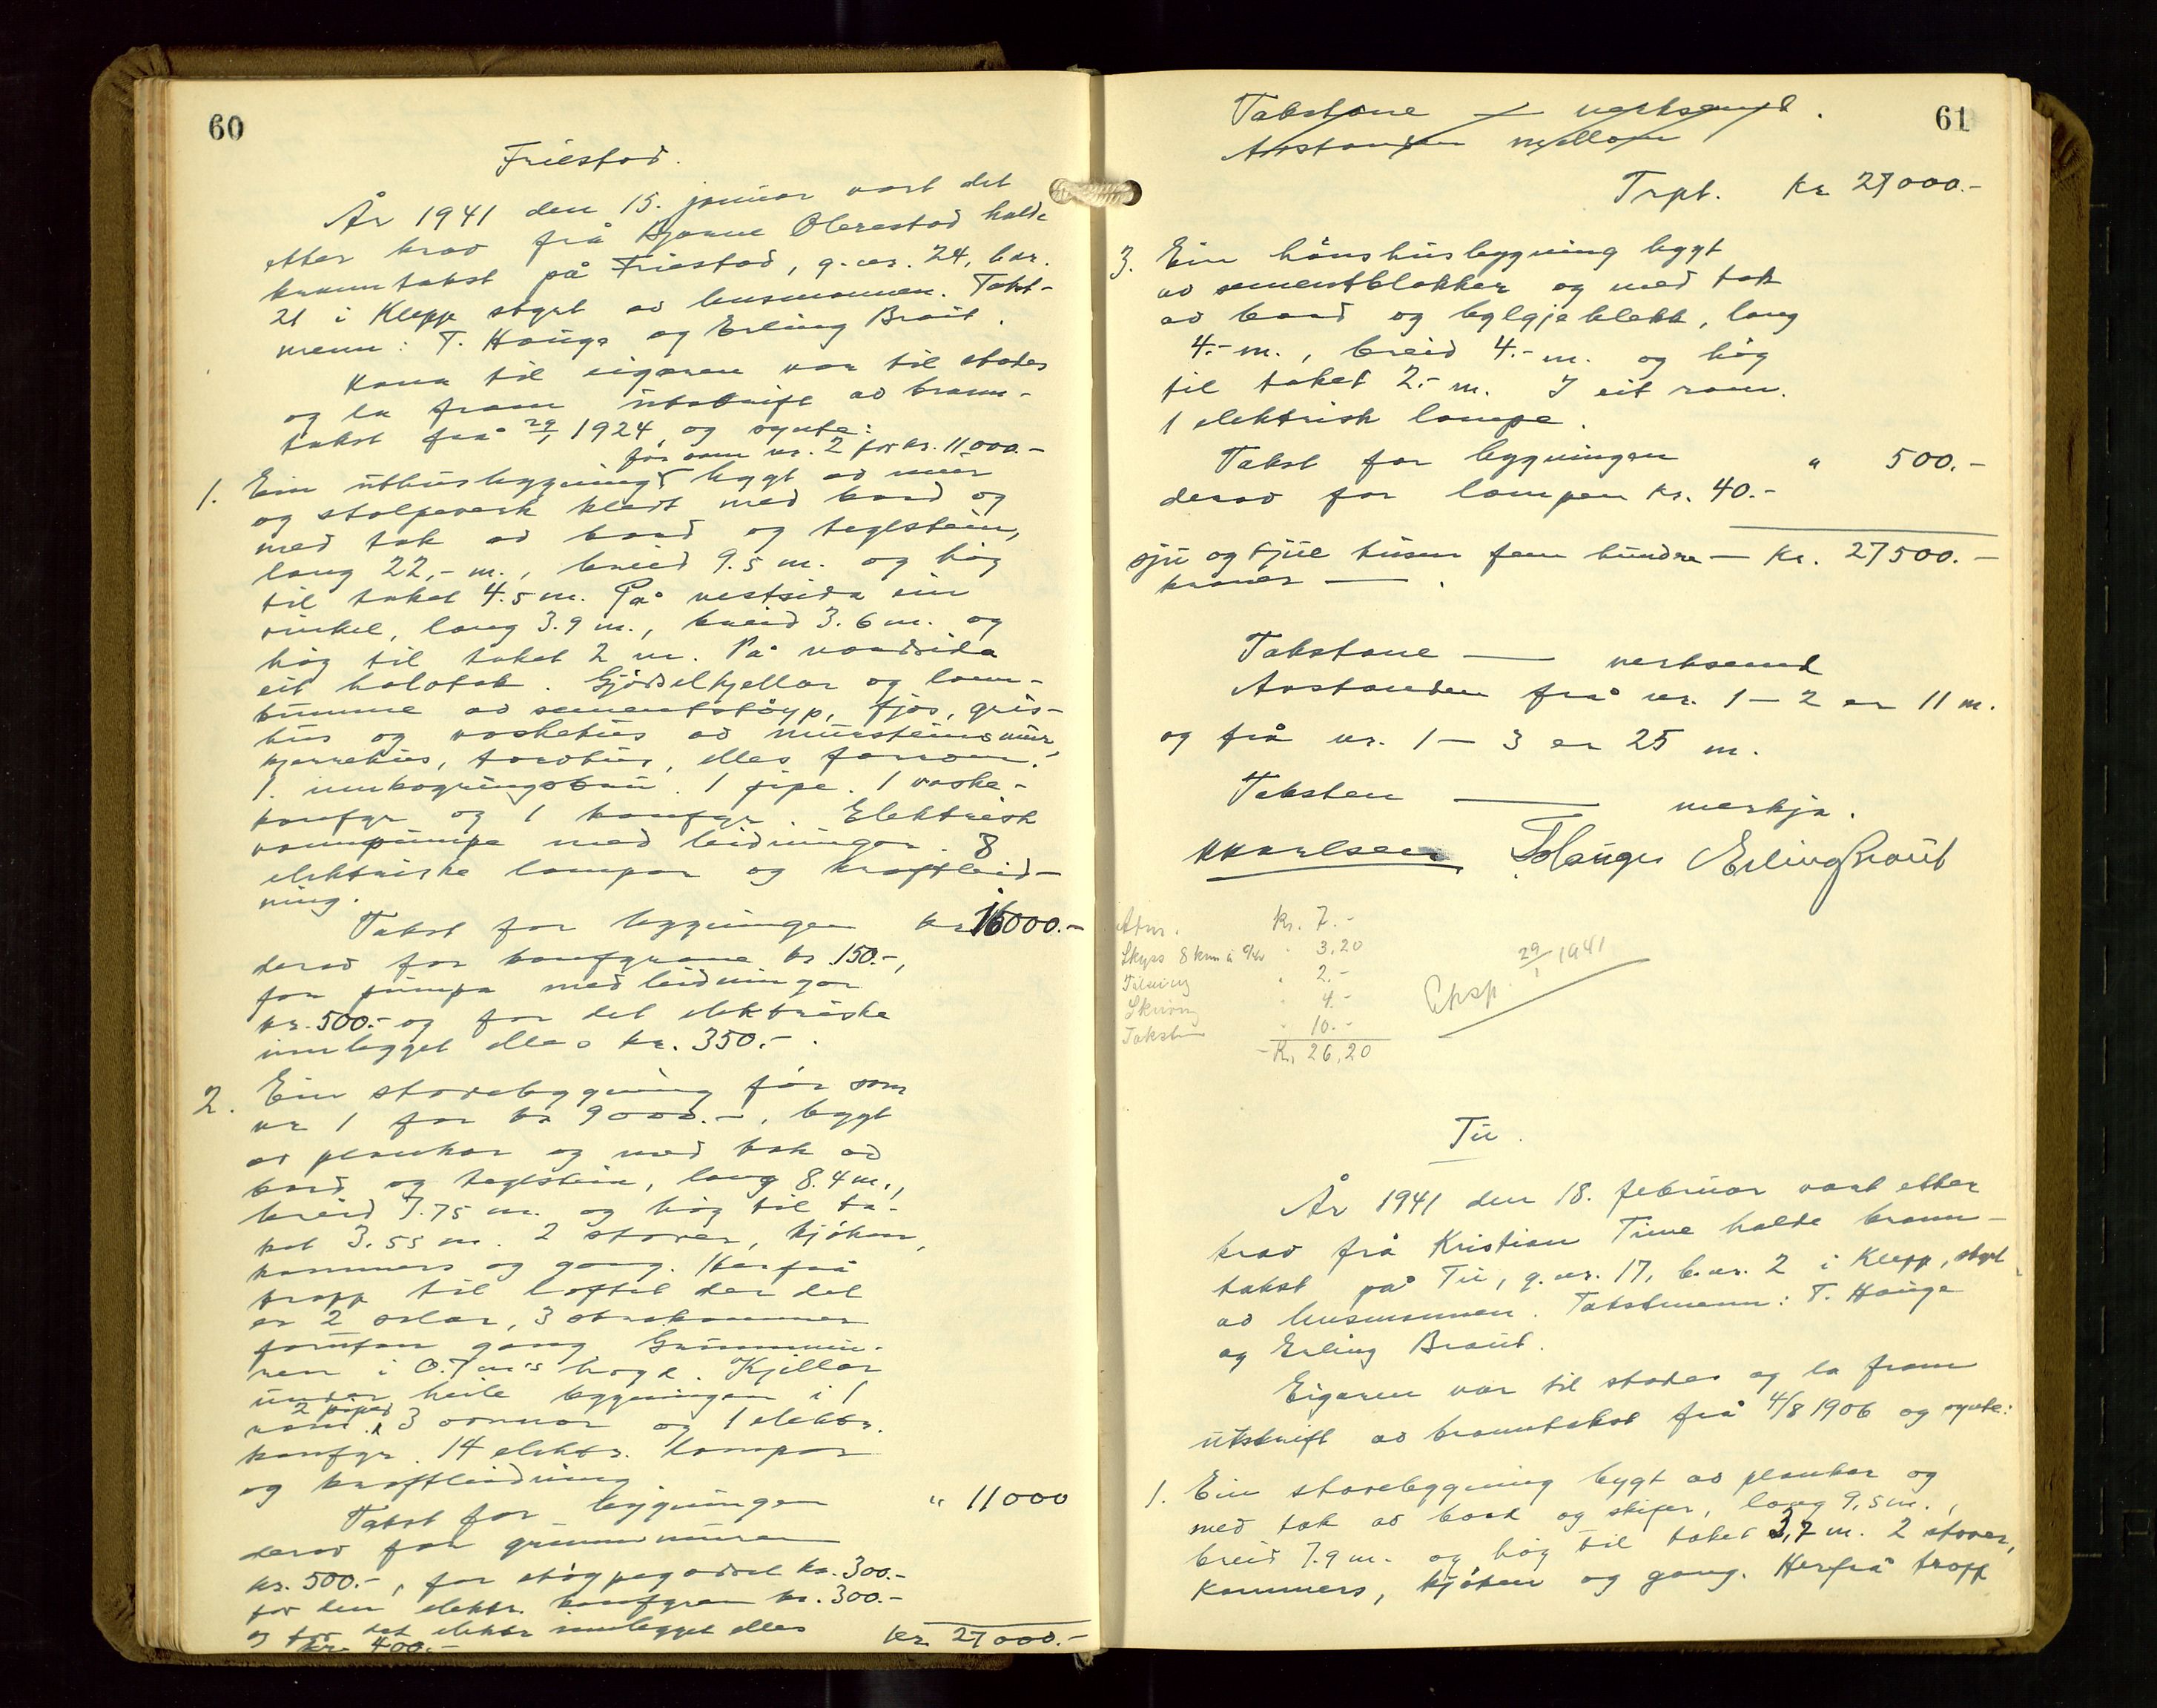 60
Friestad.
År 1941 den 15. januar vart det
etter krav frå Bjarne Obrestad halde
branntakst på Friestad, g.nr. 24, b.nr.
21 i Klepp styrt av lensmannen. Takst-
menn: T. Hauge og Erling Braut.
Kona til eigaren var til stades
og la fram utskrift av brann-
takst frå 29/1 1924, og synte:
før som nr. 2 for kr. 11000.-
1. Ein uthusbygning bygt av mur
og stolpeverk kledt med bord og
med tak av bord og teglstein,
lang 22,- m., breid 9.5 m. og høg
til taket 4.5 m. På vestsida ein
vinkel, lang 3.9 m., breid 3.6 m. og
høg til taket 2 m. På nordsida
eit halvtak. Gjødselkjellar og land-
kumme av sementstøyp, fjos, gris-
hus og vaskehus av mursteinsmur,
kjerrehus, torvhus, elles forrom.
1 innkøyringsbru. 1 pipe. 1 vaske-
komfyr og 1 komfyr. Elektrisk
vannpumpe med leidningar. 8
elektriske lampor og kraftleid-
ning.
Takst for bygningen kr. 16000.-
derav for komfyrane kr. 150.-,
for pumpa med leidningar
kr. 500.- og for det elektriske
innlegget elles kr. 350.-.
2. Ein stovebygning før som
nr 1 for kr 9000.-, bygt
av plankar og med tak av
bord og teglstein, lang 8.4 m.,
breid 7.75 m. og høg til ta-
ket 3.55 m. 2 stover, kjøken,
kammers og gang. Herfrå
tropp til loftet der det
er 2 salar, 3 sovekammer
forutan gang. Grunnmu-
ren i 0.7 m's høgd. Kjellar
under heile bygningen i 1
rom. 2 pipor, 3 omnar og 1 elektr.
komfyr. 14 elektr. lampor
og kraftleidning
Takst for bygningen " 11000
derav for grunnmuren
kr. 500.-, for støypegodset kr. 300.-
for den elektr. komfyren kr. 300.-
og for det elektr innlegget elles
kr. 400.-
kr. 27000.-
61
Takstane — verksemd.
Avstanden mellom
Trpt. kr 27000.-
3. Ein hønshusbygning bygt
av sementblokker og med tak
av bord og bylgjeblekk, lang
4.- m., breid 4.- m. og høg
til taket 2.- m. I eit rom.
1 elektrisk lampe.
Takst for bygningen " 500.-
derav for lampen kr. 40.-
sju og tjue tusen fem hundre — kr. 27500.-
kroner — .
Takstane — verksemd
Avstanden frå nr. 1 – 2 er 11 m.
og frå nr. 1 – 3 er 25 m.
Taksten — merkja.
T. Hauge Erling Braut
Kr. 7.-
Skyss 8 km " 3,20
" 2.-
Skriving " 4.-
Takstm " 10.-
Kr. 26,20
Eksp. 29/1 1941
Tu.
År 1941 den 18. februar vart etter
krav frå Kristian Time halde brann-
takst på Tu, g.nr. 17, b.nr. 2 i Klepp, styrt
av lensmannen. Takstmenn: T. Hauge
og Erling Braut.
Eigaren var til stades og la fram
utskrift av branntakst frå 4/8 1906 og synte:
1. Ein stovebygning bygt av plankar og
med tak av bord og skifer, lang 9,5 m.,
breid 7.9 m. og høg til taket 3,7 m. 2 stover,
kammers, kjøken og gang. Herfrå tropp